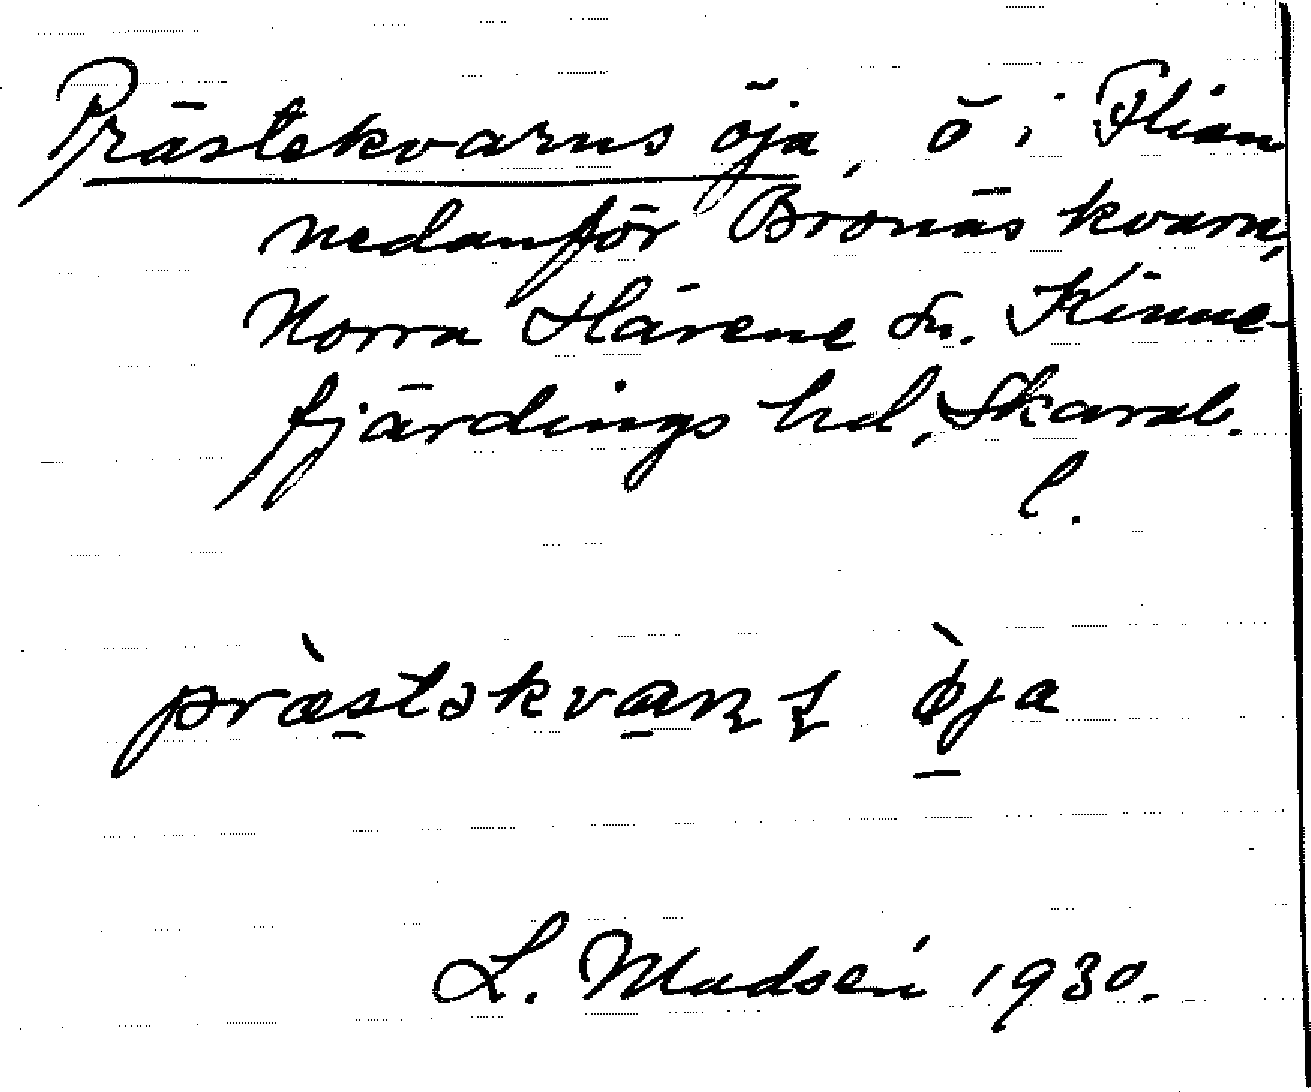 Prästekvarns öja, ö i Flian
nedanför Bronäs kvarn,
Norra Härene sn. Kinne-
fjärdings hd, Skarab.
l.
præ̀stəkvaɳʂ ø̀ja
L. Madsén 1930.